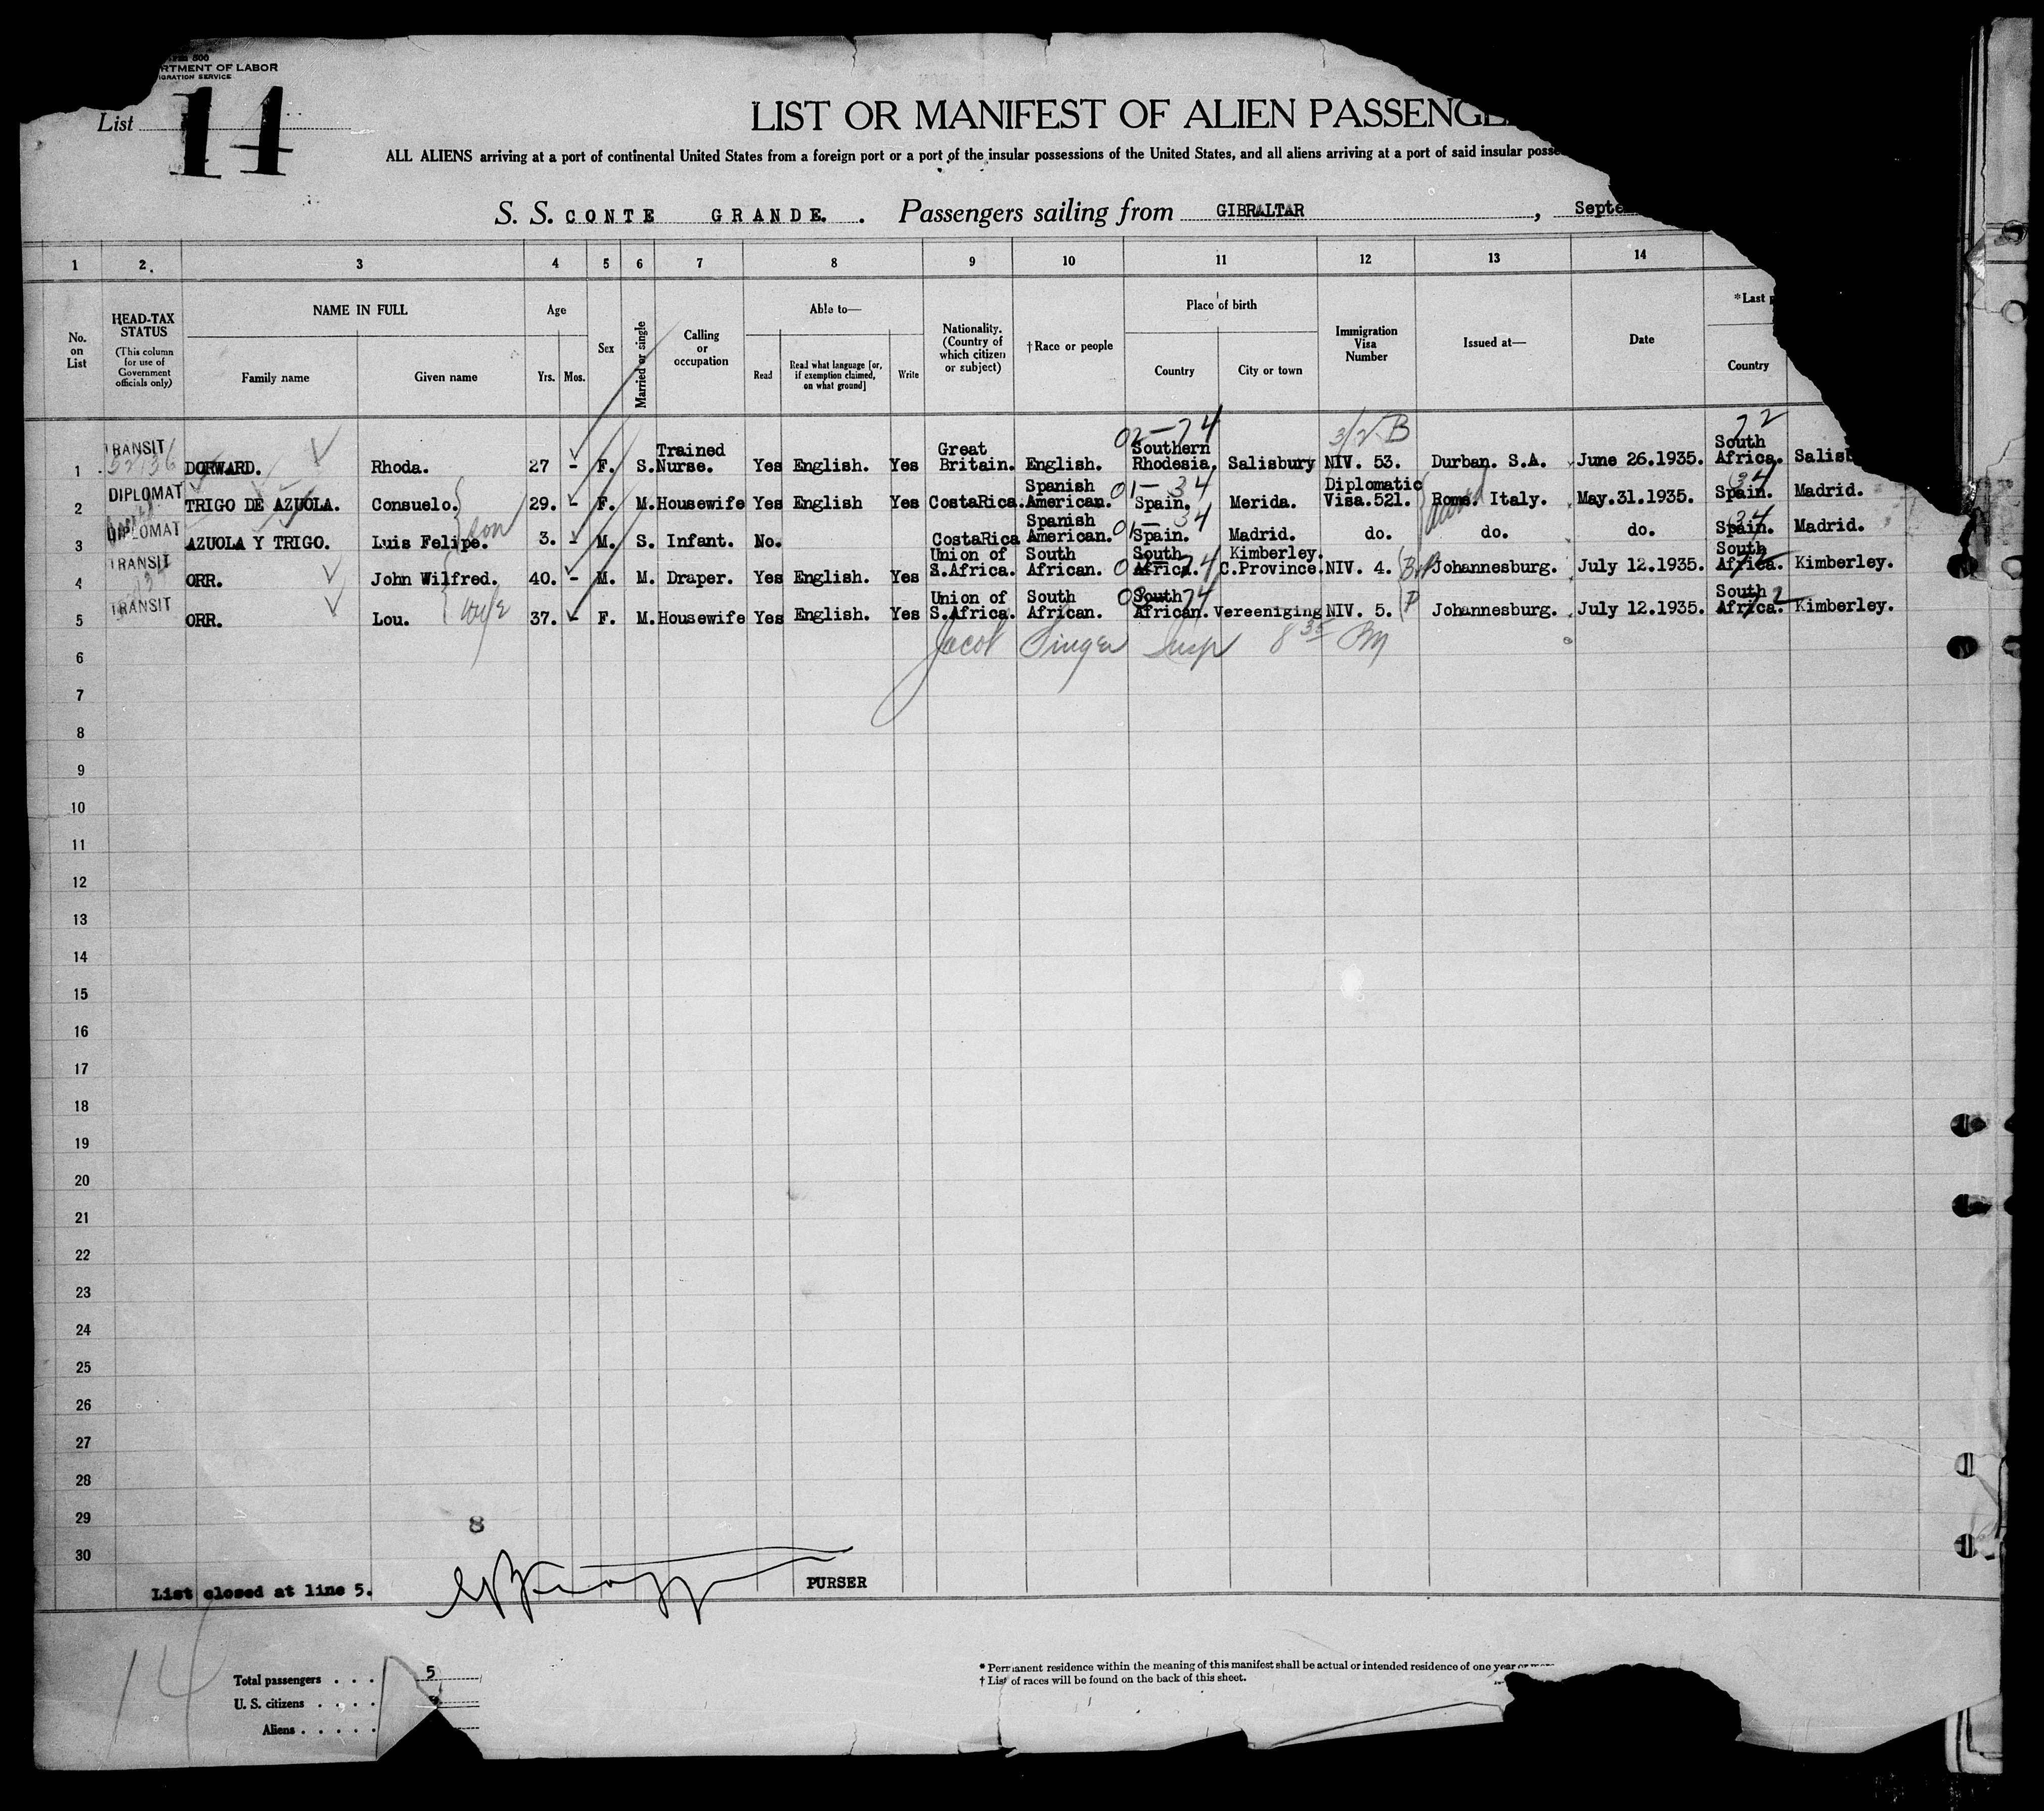 RTMENT OF LABOR
IGRATION SERVICE
List 14
LIST OR MANIFEST OF ALIEN PASSENGE
ALL ALIENS arriving at a port of continental United States from a foreign port or a port of the insular possessions of the United States, and all aliens arriving at a port of said insular posse
S. S. CONTE GRANDE. Passengers sailing from GIBRALTAR, Septe
1 2 3 4 5 6 7 8 9 10 11 12 13 14
No. on List
HEAD-TAX STATUS
(This column for use of Government officials only)
NAME IN FULL
Family name Given name
Age
Yrs. Mos.
Sex
Married or single
Calling or occupation
Able to—
Read
Read what language [or, if exemption claimed, on what ground]
Write
Nationality. (Country of which citizen or subject)
†Race or people
Place of birth
Country City or town
Immigration Visa Number
Issued at—
Date
*Last p
Country
02-74 3/2 B 72
1 TRANSIT DORWARD. Rhoda. 27 - F. S. Trained Nurse. Yes English. Yes Great Britain. English. Southern Rhodesia. Salisbury NIV. 53. Durban. S.A. June 26.1935. South Africa. Salisb
01-34 34
2 DIPLOMAT TRIGO DE AZUOLA. Consuelo. 29. - F. M. Housewife Yes English Yes CostaRica. Spanish American. Spain. Merida. Diplomatic Visa.521. Rome. Italy. May.31.1935. Spain. Madrid.
son 01-34 34
3 DIPLOMAT AZUOLA Y TRIGO. Luis Felipe. 3. - M. S. Infant. No. CostaRica Spanish American. Spain. Madrid. do. do. do. Spain. Madrid.
4 TRANSIT ORR. John Wilfred. 40. - M. M. Draper. Yes English. Yes Union of S.Africa. South African. South Africa. Kimberley. C.Province. NIV. 4. Johannesburg. July 12.1935. South Africa. Kimberley.
wife
5 TRANSIT ORR. Lou. 37. - F. M. Housewife Yes English. Yes Union of S.Africa. South African. South African. Vereeniging NIV. 5. Johannesburg. July 12.1935. South Africa. Kimberley.
Jacob Singer Insp 8 35 PM
6
7
8
9
10
11
12
13
14
15
16
17
18
19
20
21
22
23
24
25
26
27
28
29
8
30
List closed at line 5.
PURSER
14
Total passengers . . . 5
U. S. citizens . . . .
Aliens . . . . .
* Permanent residence within the meaning of this manifest shall be actual or intended residence of one year or more.
† List of races will be found on the back of this sheet.